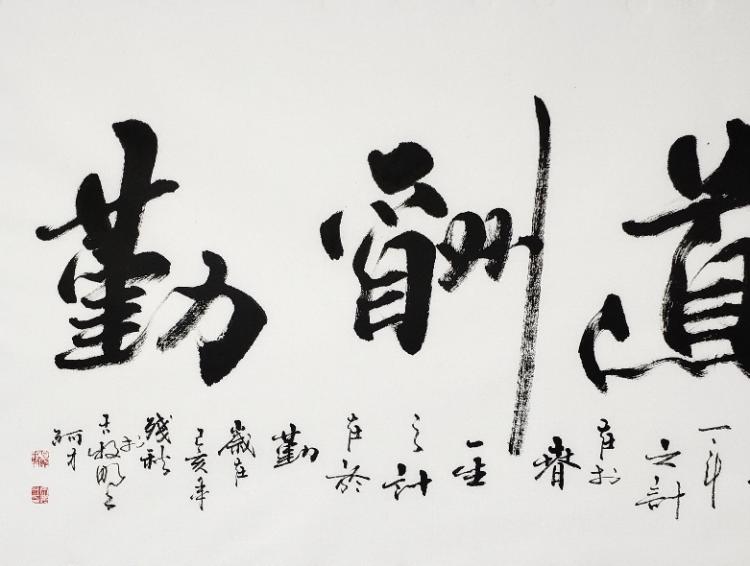 道酬勤
一年
之計
在於
春
一生
之計
在於
勤
歲在
己亥年
殘秋
於
阿才